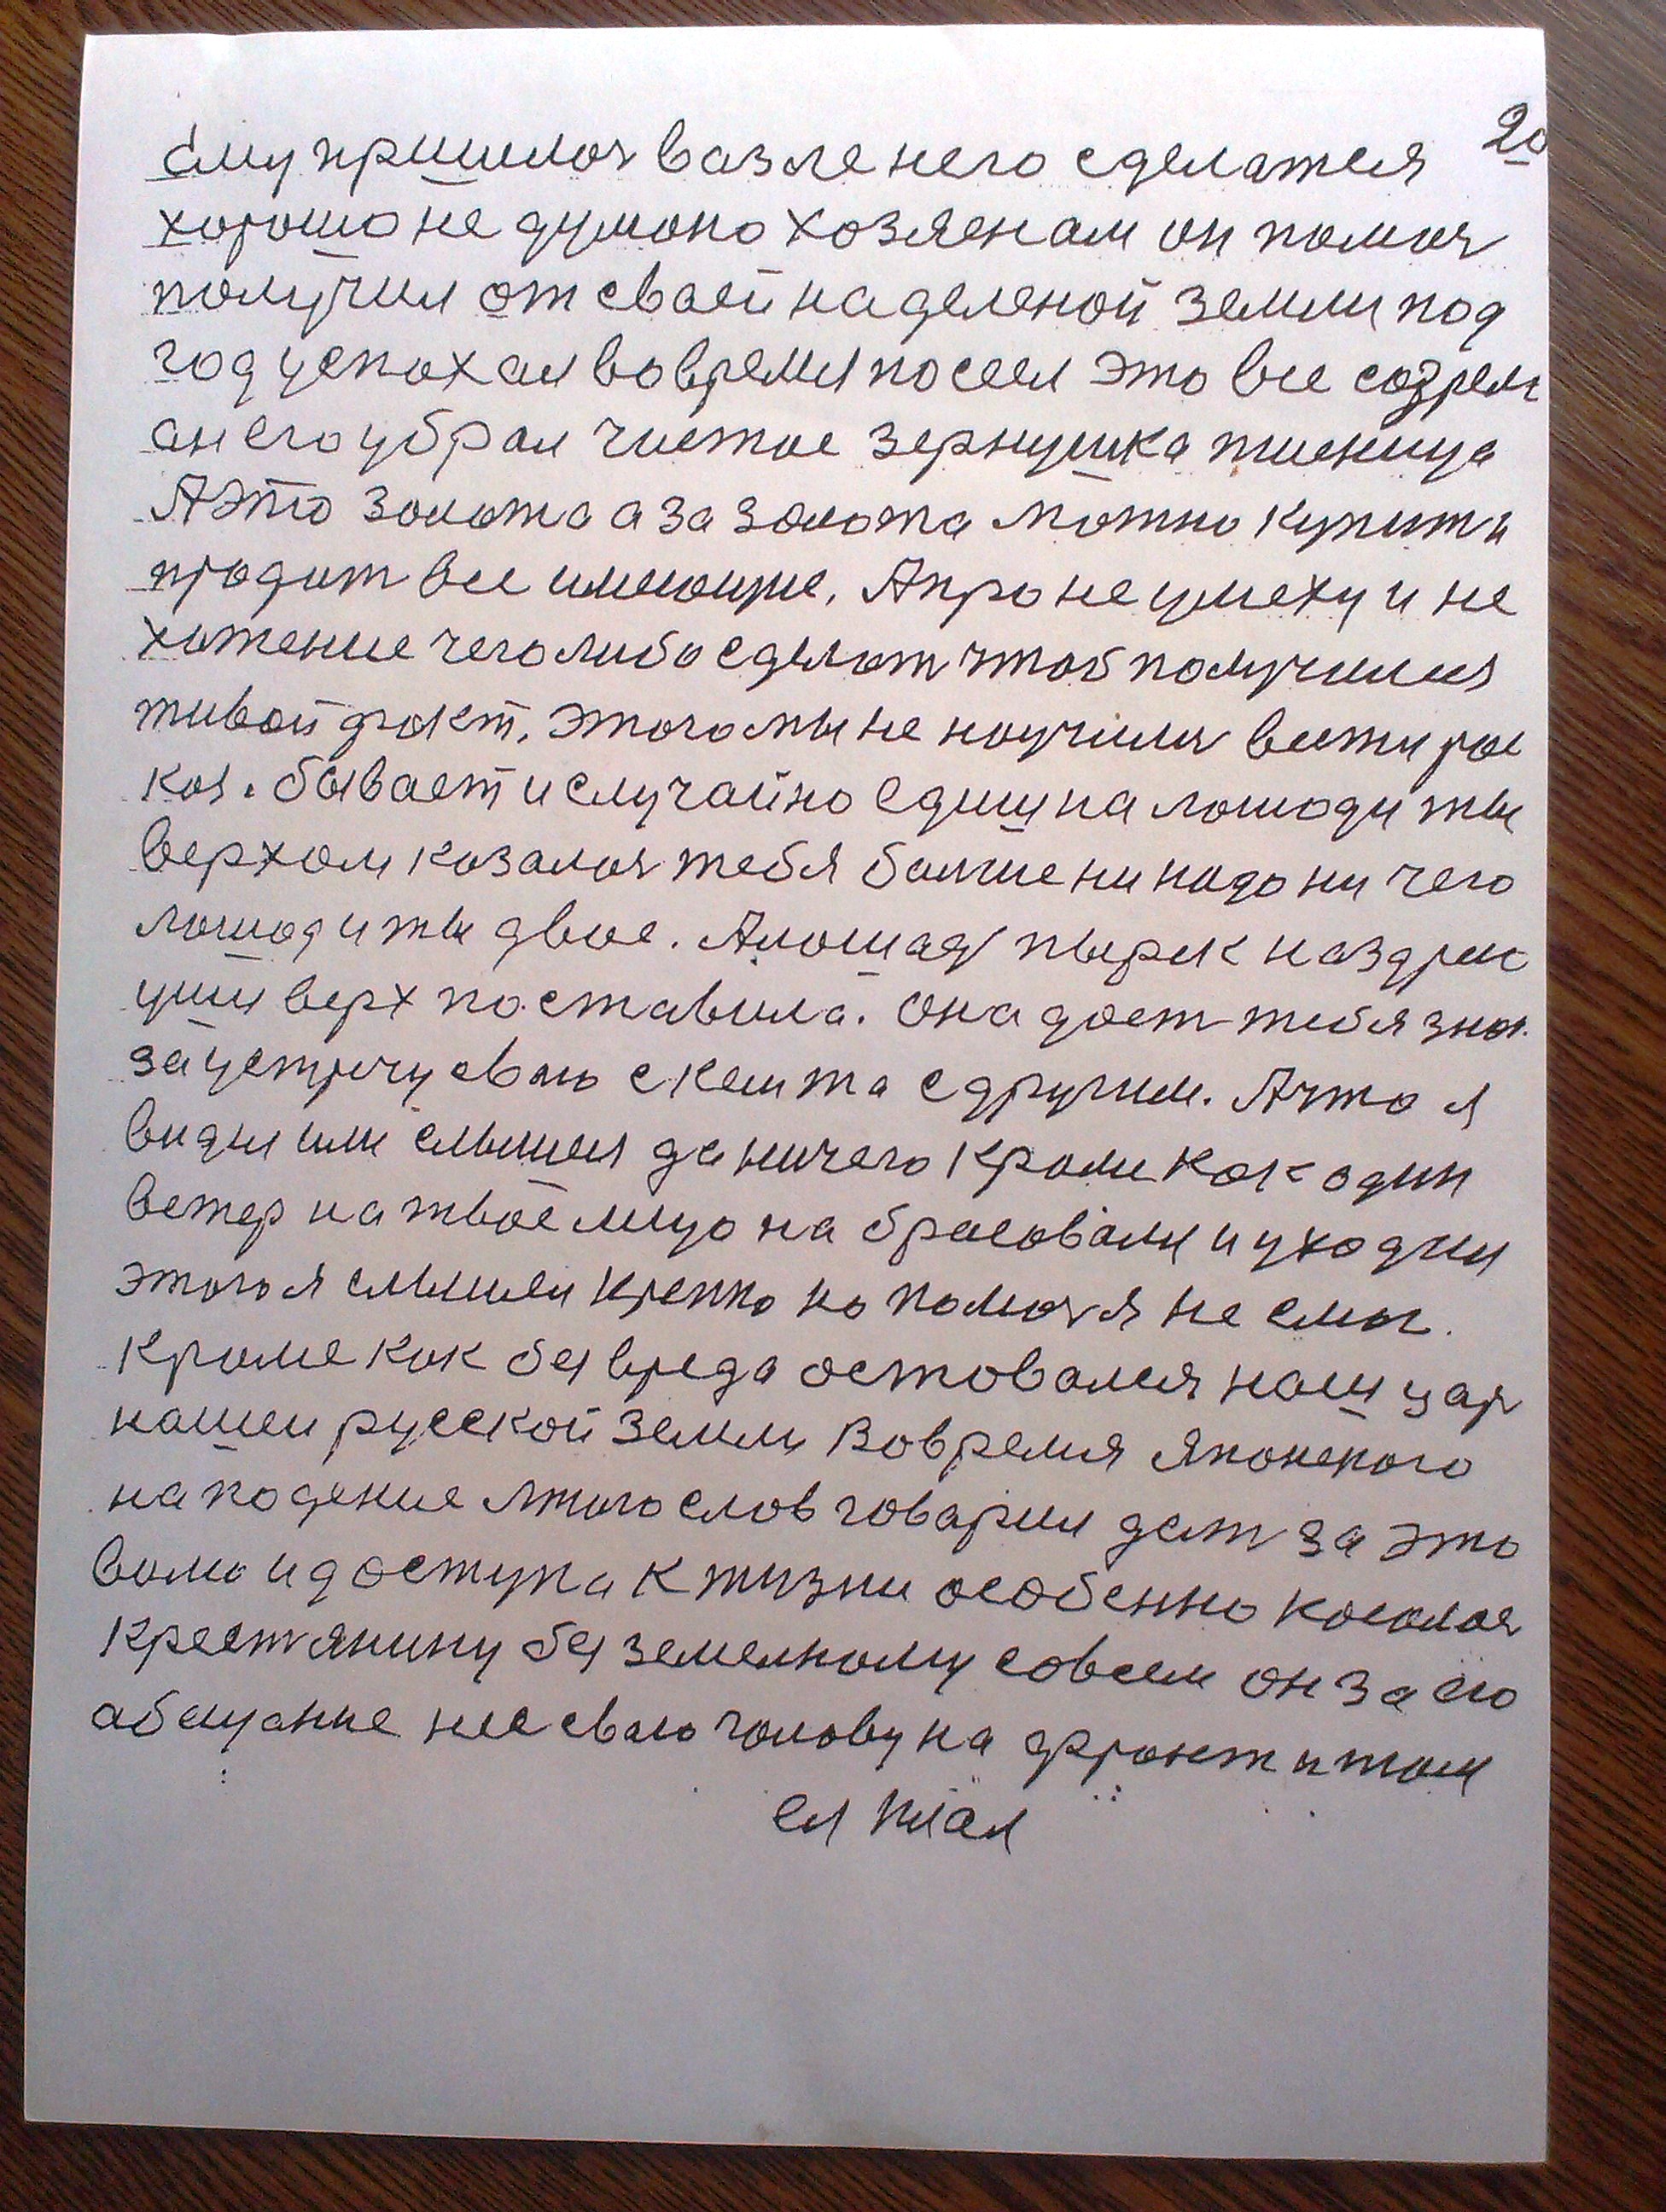 20
Ему пришлось вазле него сделатся
хорошо не думоно хозяенам он помоч
получил от сваей наделеной земли под
год успохал вовремя посеел это все созрел
он его убрал чистое зернушка пшеница
А это золота а за золота можно купит и
продат все имеющие. А про не умеху и не
хотение чего либо сделат чтоб получился
живой факт. этого мы не научился вести рос
каз. бывает и случайно едиш на лошоди ты
верхом козалос тебя болше ни надо ни чего
лошод и ты двое. А лошад пырск наздрею
уши верх поставила. Она дает тебя знат
за устречу сваю с кемта с другим. А что я
видил или слышел да ничего кроми как один
ветер на твое лицо на брасовали и уходил
этого я слышел крепко но помоч я не смог.
Кроме как без вреда остовался наш цар
нашеи русской земли Вовремя японского
нападение много слов говарил дат за это
волю и доступа к жизни особенно косолос
крестянину без земелному совсем он за его
абещание нес сваю голову на фронт и там
ея клал